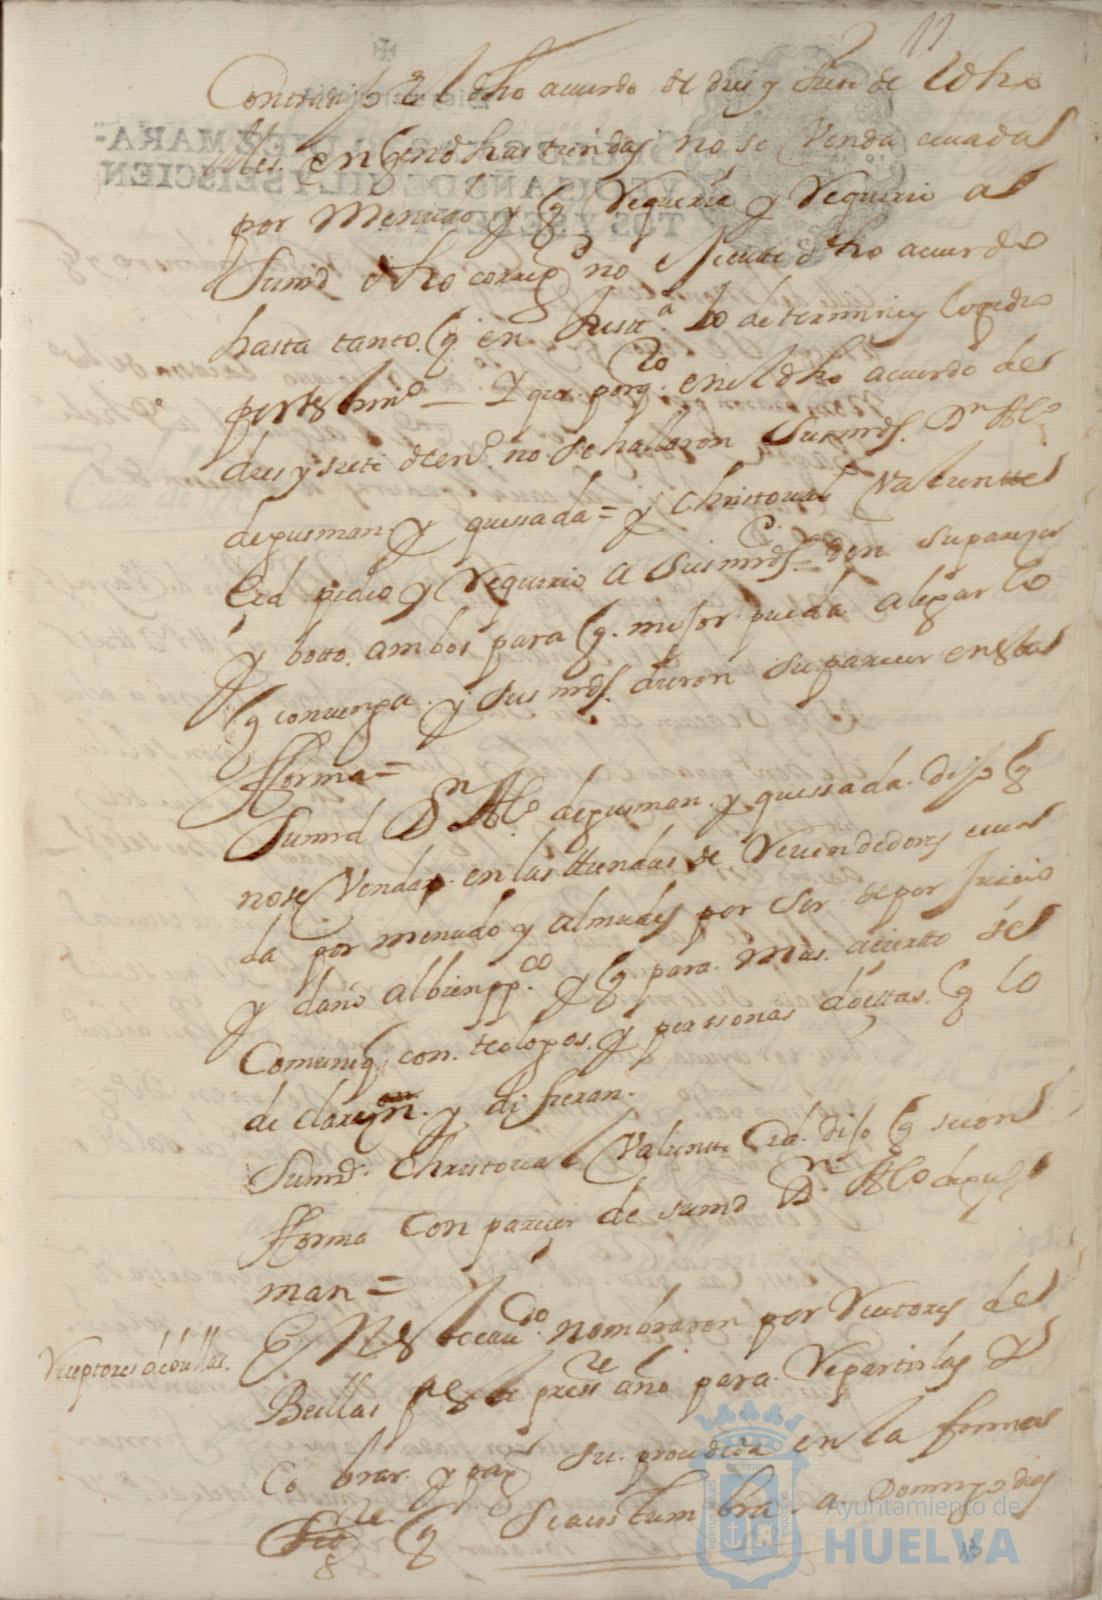 11
Contradijo el dho acuerdo de dies y siete de el dho
Mes. en q en dhas tiendas no se Venda ceuada
por Menudo y q Requeria y Requirio a
Sumd dho correg.r no ejecute dho acuerdo
hasta tanto q en Justt.a lo determine y lo pidio
por testim.o — Y que porq. en el dho acuerdo de
dies y siete de en.o no se hallaron Susmrds. Dn Al.o
de gusman y quessada = y Christoual Valiente
Pidio y Requirio a Susmrds. den su pareser
y botto ambos para q. mejor pueda alegar lo
q conuenga. y Sus mrds. dieron su pareser en esta
fforma =
Sumrd Dn Al.o de gusman y quessada. dijo q
no se Venda en las ttiendas de Reuendedores ceua
da por menudo y almudes por ser de perjuicio
y daño al bien pp.co y q para. mas. acierto se
Comunique con. teologos. y perssonas doctas. q lo
declaren. y difieran.
Sumrd. Christoual Valiente dijo q se con
fforma con pareser de sumd Dn Al.o de gus
man =
Reseptores de bullas.
En este cau.do nombraron por Resetores de
Bullas de este press.te año para Repartirlas
Cobrar y pag.r su. prosedido en la forma
q se acostumbra a Domingo dias
Ayuntamiento de
HUELVA